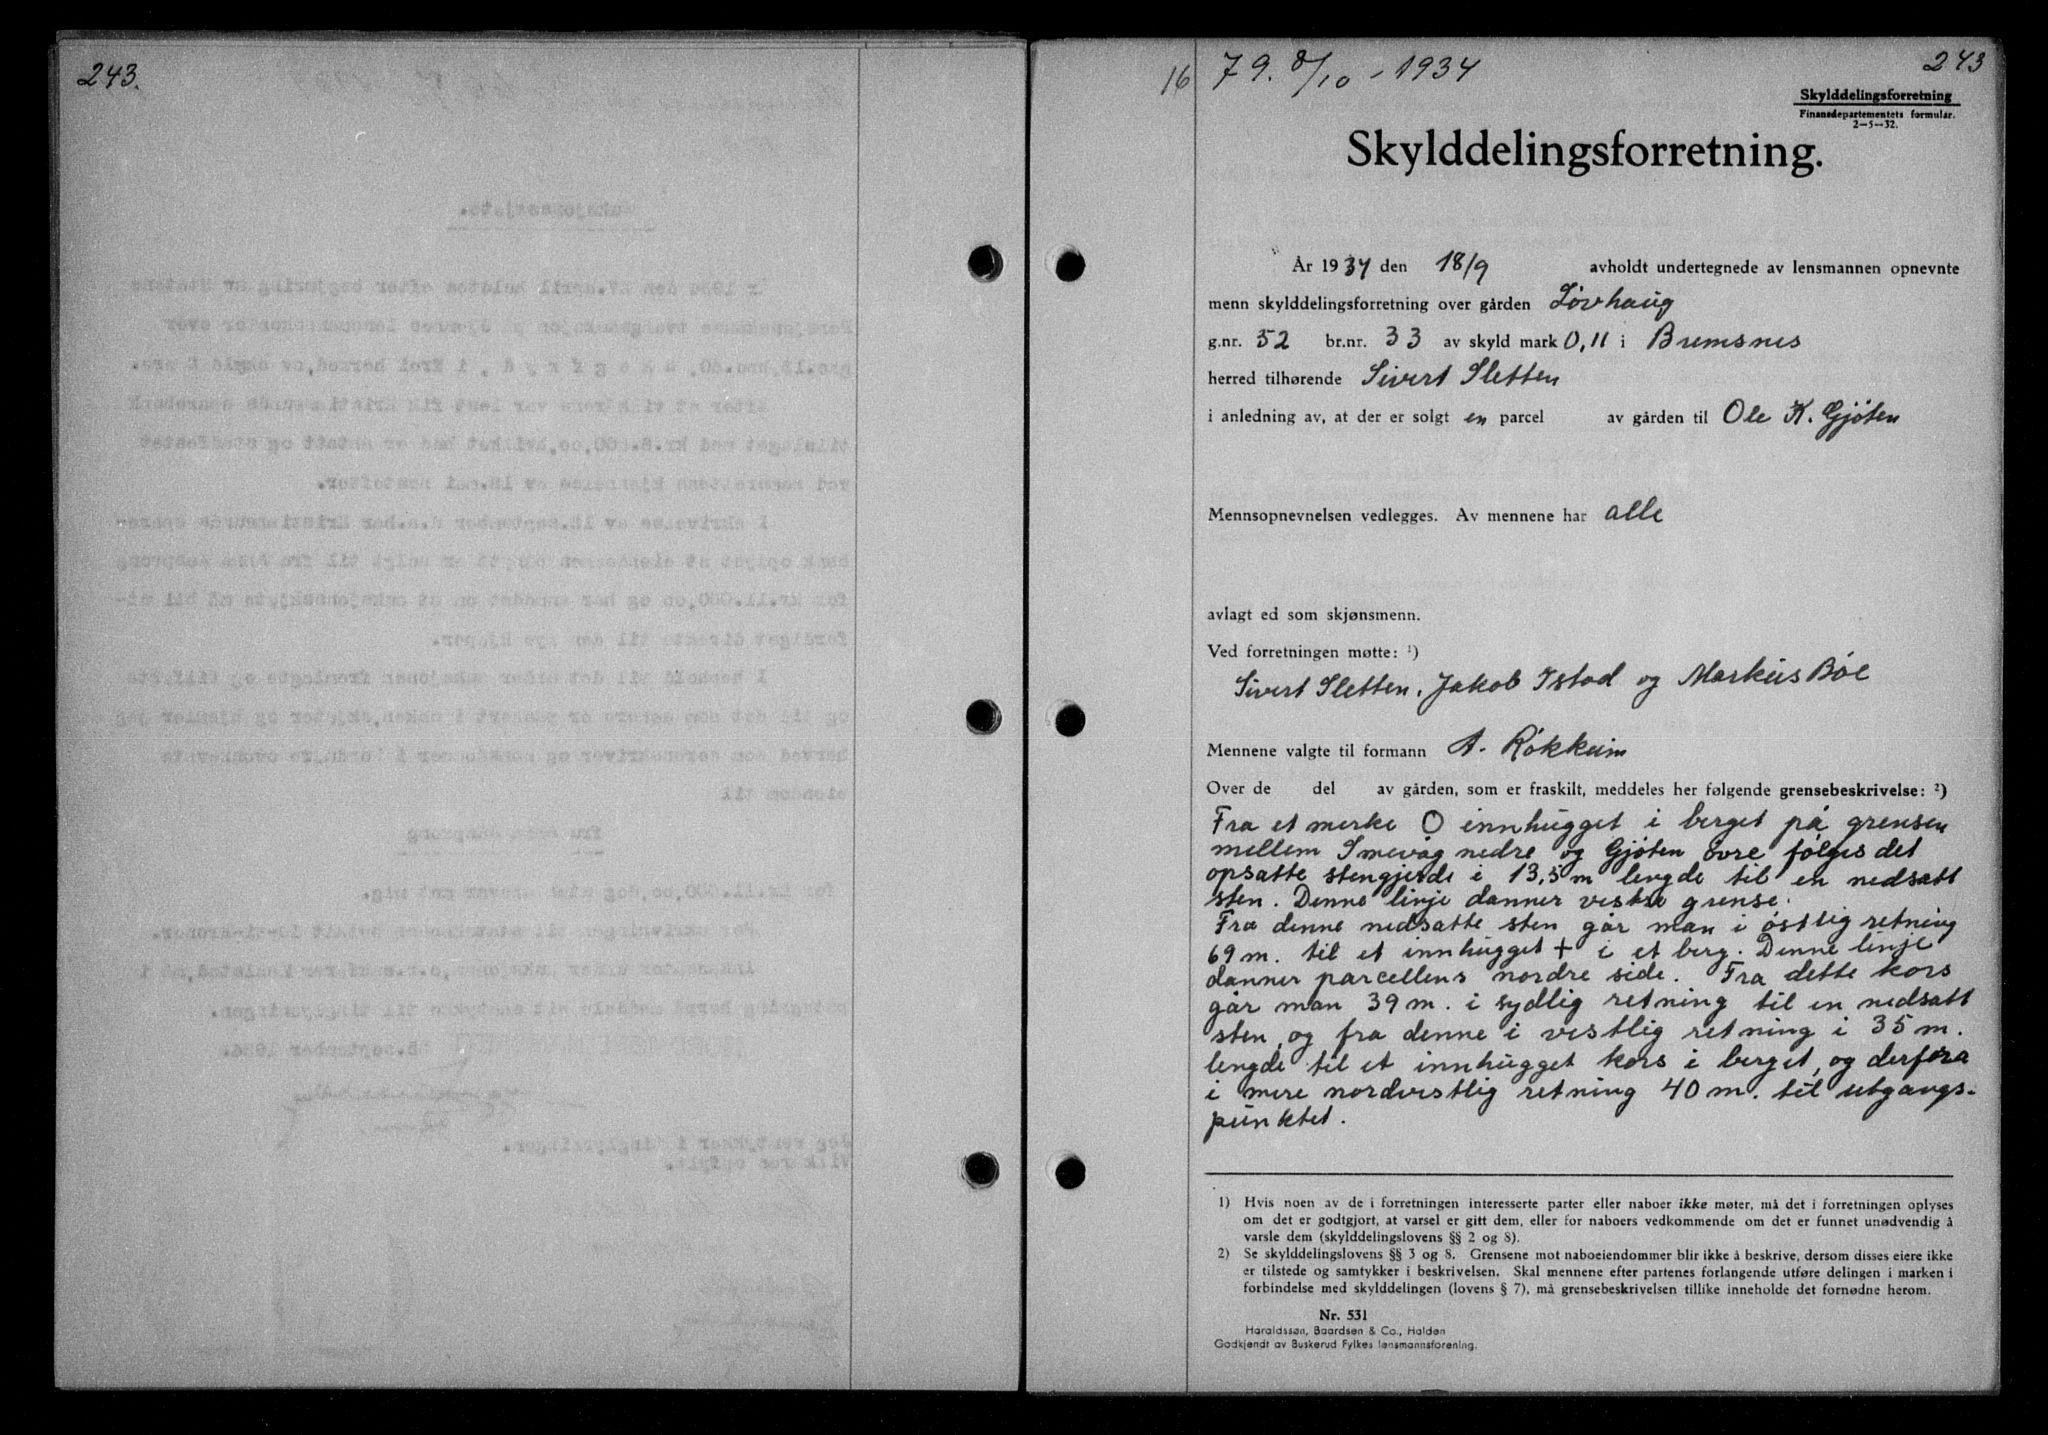 243.
16 79. 8/10 - 1934
243
Skylddelingsforretning
Finansdepartementets formular.
2—5—32.
Skylddelingsforretning.
År 1934 den 18/9 avholdt undertegnede av lensmannen opnevnte
menn skylddelingsforretning over gården Løvhaug
g.nr. 52 br.nr. 33 av skyld mark 0,11 i Bremsnes
herred tilhørende Sivert Sletten
i anledning av, at der er solgt en parcel av gården til Ole K. Gjøten
Mennsopnevnelsen vedlegges. Av mennene har alle
avlagt ed som skjønsmenn.
Ved forretningen møtte: ¹)
Sivert Sletten, Jakob Istad og Markus Bøe
Mennene valgte til formann A. Røkkum
Over de del av gården, som er fraskilt, meddeles her følgende grensebeskrivelse: ²)
Fra et merke O innhugget i berget på grensen
mellem Smevåg nedre og Gjøten øvre følges det
opsatte stengjerde i 13,5 m lengde til en nedsatt
sten. Denne linje danner vestre grense.
Fra denne nedsatte sten går man i østlig retning
69 m. til et innhugget + i et berg. Denne linje
danner parcellens nordre side. Fra dette kors
går man 39 m. i sydlig retning til en nedsatt
sten, og fra denne i vestlig retning i 35 m.
lengde til et innhugget kors i berget, og derfra
i mere nordvestlig retning 40 m. til utgangs-
punktet.
1) Hvis noen av de i forretningen interesserte parter eller naboer ikke møter, må det i forretningen oplyses
om det er godtgjort, at varsel er gitt dem, eller for naboers vedkommende om det er funnet unødvendig å
varsle dem (skylddelingslovens §§ 2 og 8).
2) Se skylddelingslovens §§ 3 og 8. Grensene mot naboeiendommer blir ikke å beskrive, dersom disses eiere ikke
er tilstede og samtykker i beskrivelsen. Skal mennene efter partenes forlangende utføre delingen i marken i
forbindelse med skylddelingen (lovens § 7), må grensebeskrivelsen tillike inneholde det fornødne herom.
Nr. 531
Haraldssøn, Baardsen & Co., Halden
Godkjendt av Buskerud Fylkes lensmannsforening.